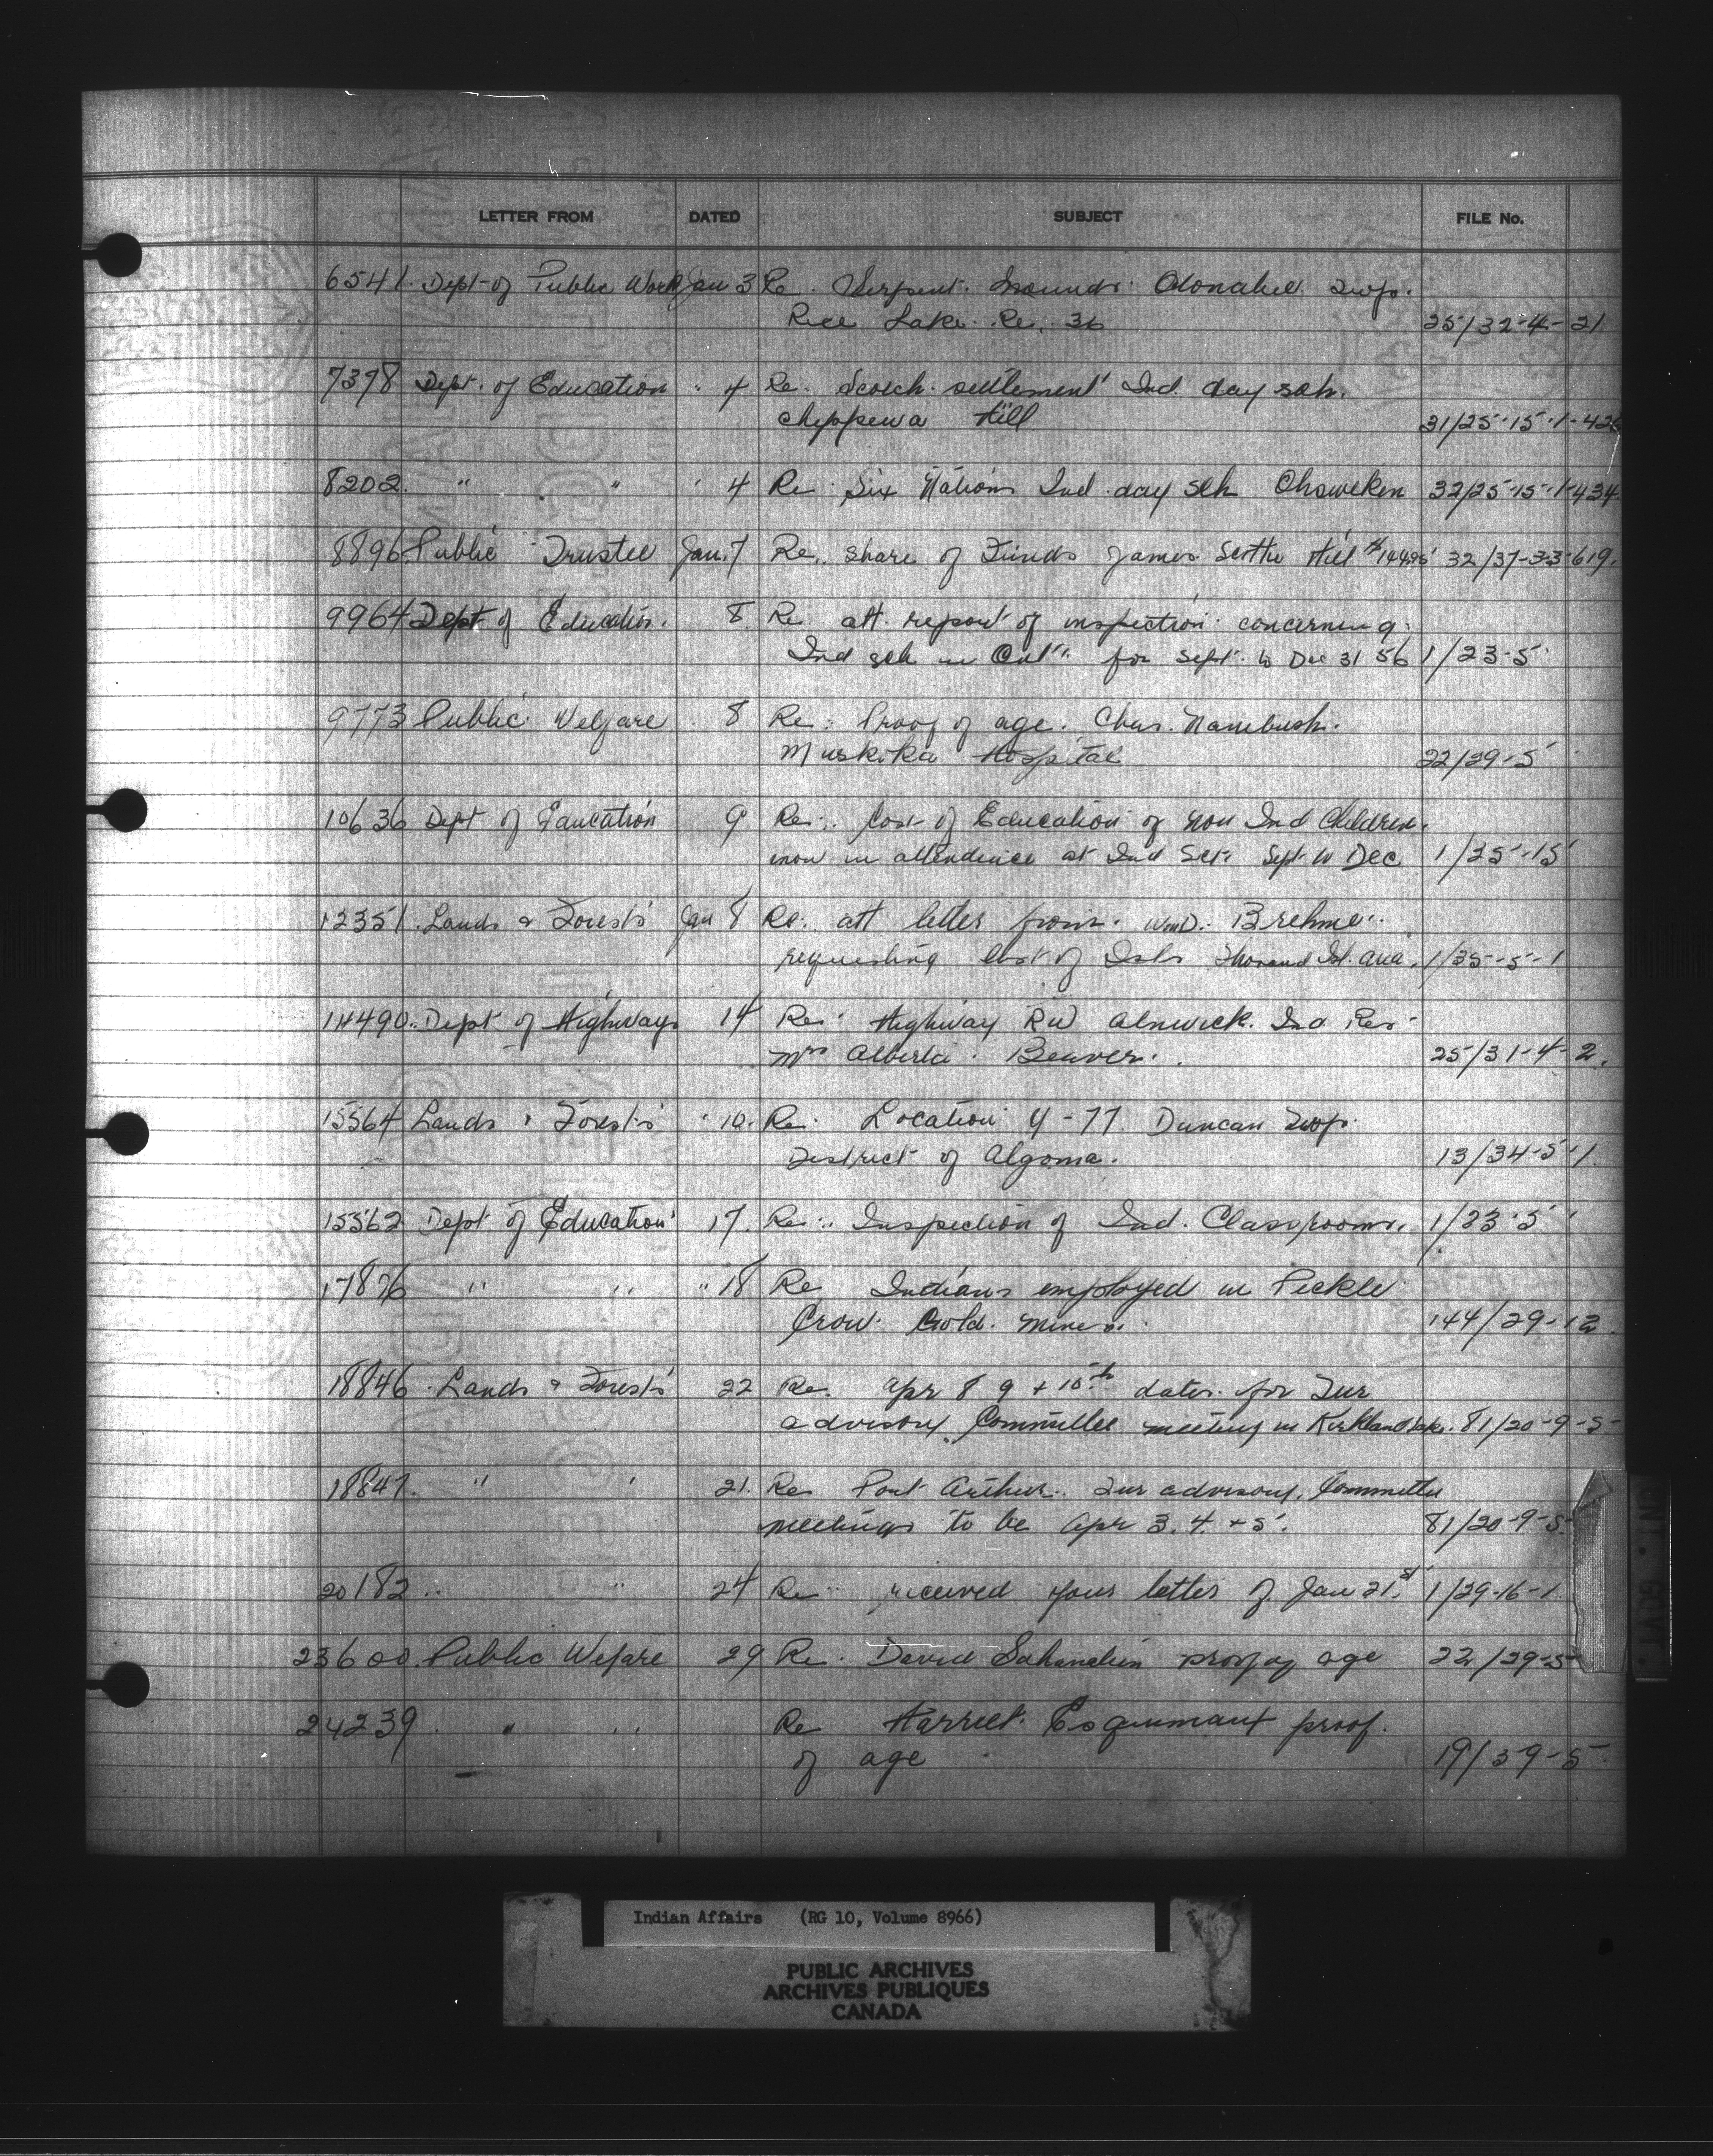 LETTER FROM DATED SUBJECT FILE No.
6541. Dept of Public Works Jan 3 Re. Serpent Mounds Otonabee Twp.
Rice Lake. Re. 36 25/32-4-21
7378 Dept. of Education " 4 Re. Scotch settlement Ind. day sch.
Chippewa Hill 31/25-15-1-426
8202. " " " 4 Re. Six Nations Ind. day sch Ohsweken 32/25-15-1-434
8896 Public Trustee Jan. 7 Re. share of Funds James Hill 32/37-33-619.
9964 Dept of Education. 8. Re att. report of inspection concerning
Ind sch in Ont. for Sept. to Dec 31 56 1/23-5
9773 Public Welfare 8 Re: Proof of age. Chas. Nanibush.
Muskoka Hospital 22/29-5
10636 Dept of Education 9 Re: Cost of Education of non Ind Children
now in attendence at Ind Sch Sept to Dec 1/25-15
12351. Lands & Forests Jan 8 Re. att letter from Wm D. Brehme
requesting list of Isls Thousand Isl. area. 1/35-5-1
14490. Dept of Highways 14 Re: Highway RW Alnwick Ind Res
Mrs Alberta Beaver. 25/31-4-2.
15564 Lands & Forests " 10. Re. Location Y-77. Duncan Twp.
District of Algoma. 13/34-5-1.
15562 Dept of Education 17. Re: Inspection of Ind. Classrooms. 1/23-5
17876 " " " 18 Re Indians employed in Pickle
Crow Gold Mines. 144/29-12
18846 Lands & Forests 22 Re. Apr 8 9 + 10th dates for Fur
advisory Committee meeting in Kirkland Lake. 81/20-9-5
18847. " " 21. Re Port Arthur. Fur advisory Committee
meetings to be Apr 3. 4 + 5. 81/20-9-5
20182 " " 24 Re received your letter of Jan 21st 1/29-16-1
23600. Public Welfare 29 Re. David proof of age 22/29-5
24239 " " Re Harriet Esquimaux proof
of age 19/39-5
Indian Affairs (RG 10, Volume 8966)
PUBLIC ARCHIVES
ARCHIVES PUBLIQUES
CANADA